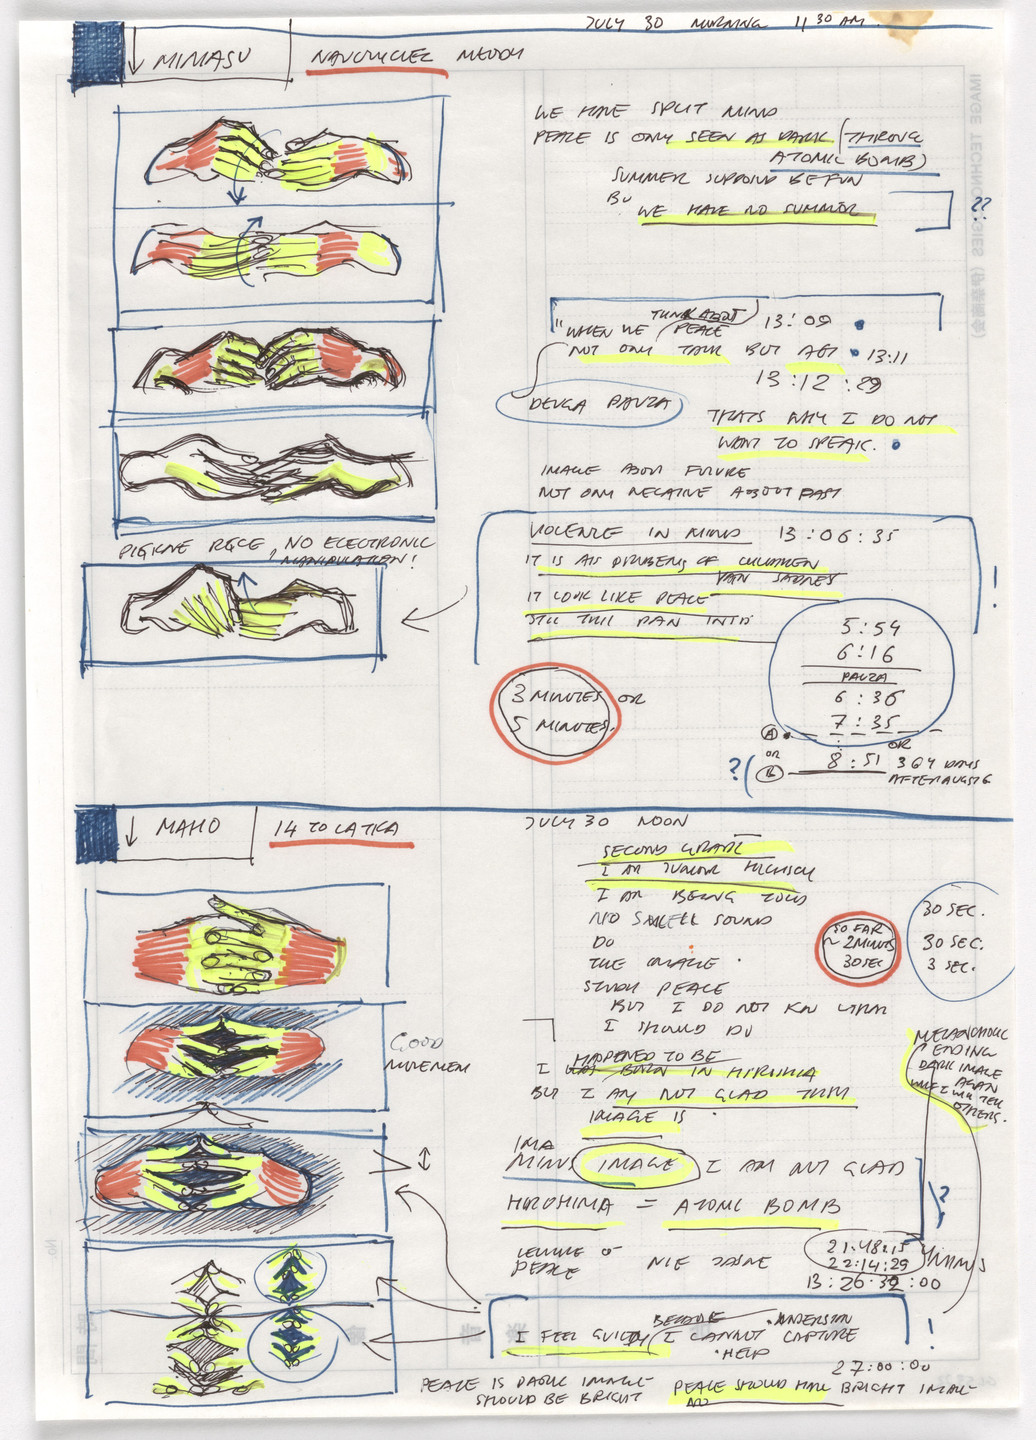 JULY 30 MORNING 11 30 AM.
MIMASU
NAUCZYCIEL MŁODY
WE HAVE SPLIT MIND
PEACE IS ONLY SEEN AS DARK (THROUG
ATOMIC BOMB)
SUMMER SUPPOUD BE FUN
BU
WE HAVE NO SUMMER
??
THINK ABOUT
"WHEN WE (PEACE 13:09
NOT ONLY TALK BUT ACT 13:11
13:12:29
DŁUGA PAUZA
THATS WHY I DO NOT
WANT TO SPEAK.
IMAGE ABOUT FUTURE
NOT ONLY NEGATIVE ABOUT PAST
PIĘKNE RĘCE, NO ELECTRONIC
MANIPULATION!
VIOLENCE IN MIND 13:06:35
IT IS AS DRUBING OF CHILDREN
IT LOOK LIKE PEACE
STILL
!
5:54
6:16
PAUZA
6:36
7:35
A
OR
OR
8:51
?( B
364 DAYS
AFTER AUGST 6
3 MINUTES OR
5 MINUTES.
MAHO
14 TO LATKA
JULY 30 NOON
SECOND GRADE
I AM JUNIOR HIGHSCH
I AM BEING TOLD
NO SMELL SOUND
DO
THE IMAGE
STUDY PEACE
BUT I DO NOT KN WHAT
I SHOULD DO
SO FAR
~2 MINUTS
30 SEC
30 SEC.
30 SEC.
3 SEC.
GOOD
MOVEMEN
HAPPENED TO BE
I WAS BORN IN HIROHIMA
BUT I AM NOT GLAD THIS
IMAGE IS
MELANCHOLIC
ENDING
DARK IMAGE
AGAIN
OTHERS.
IMA
MINUS IMAGE I AM NOT GLAD
HIROHIMA = ATOMIC BOMB
?
PEACE NIE JASNE
21:48:15
22:14:29
4 MINUS
13:26:32:00
BECAUSE UNDERSTAN
I FEEL GUILTY (I CANNOT CAPTURE
HELP
!
27:00:00
PEACE IS DARK IMAGE
SHOULD BE BRIGHT
PEACE SHOULD HAVE BRIGHT IMAGE